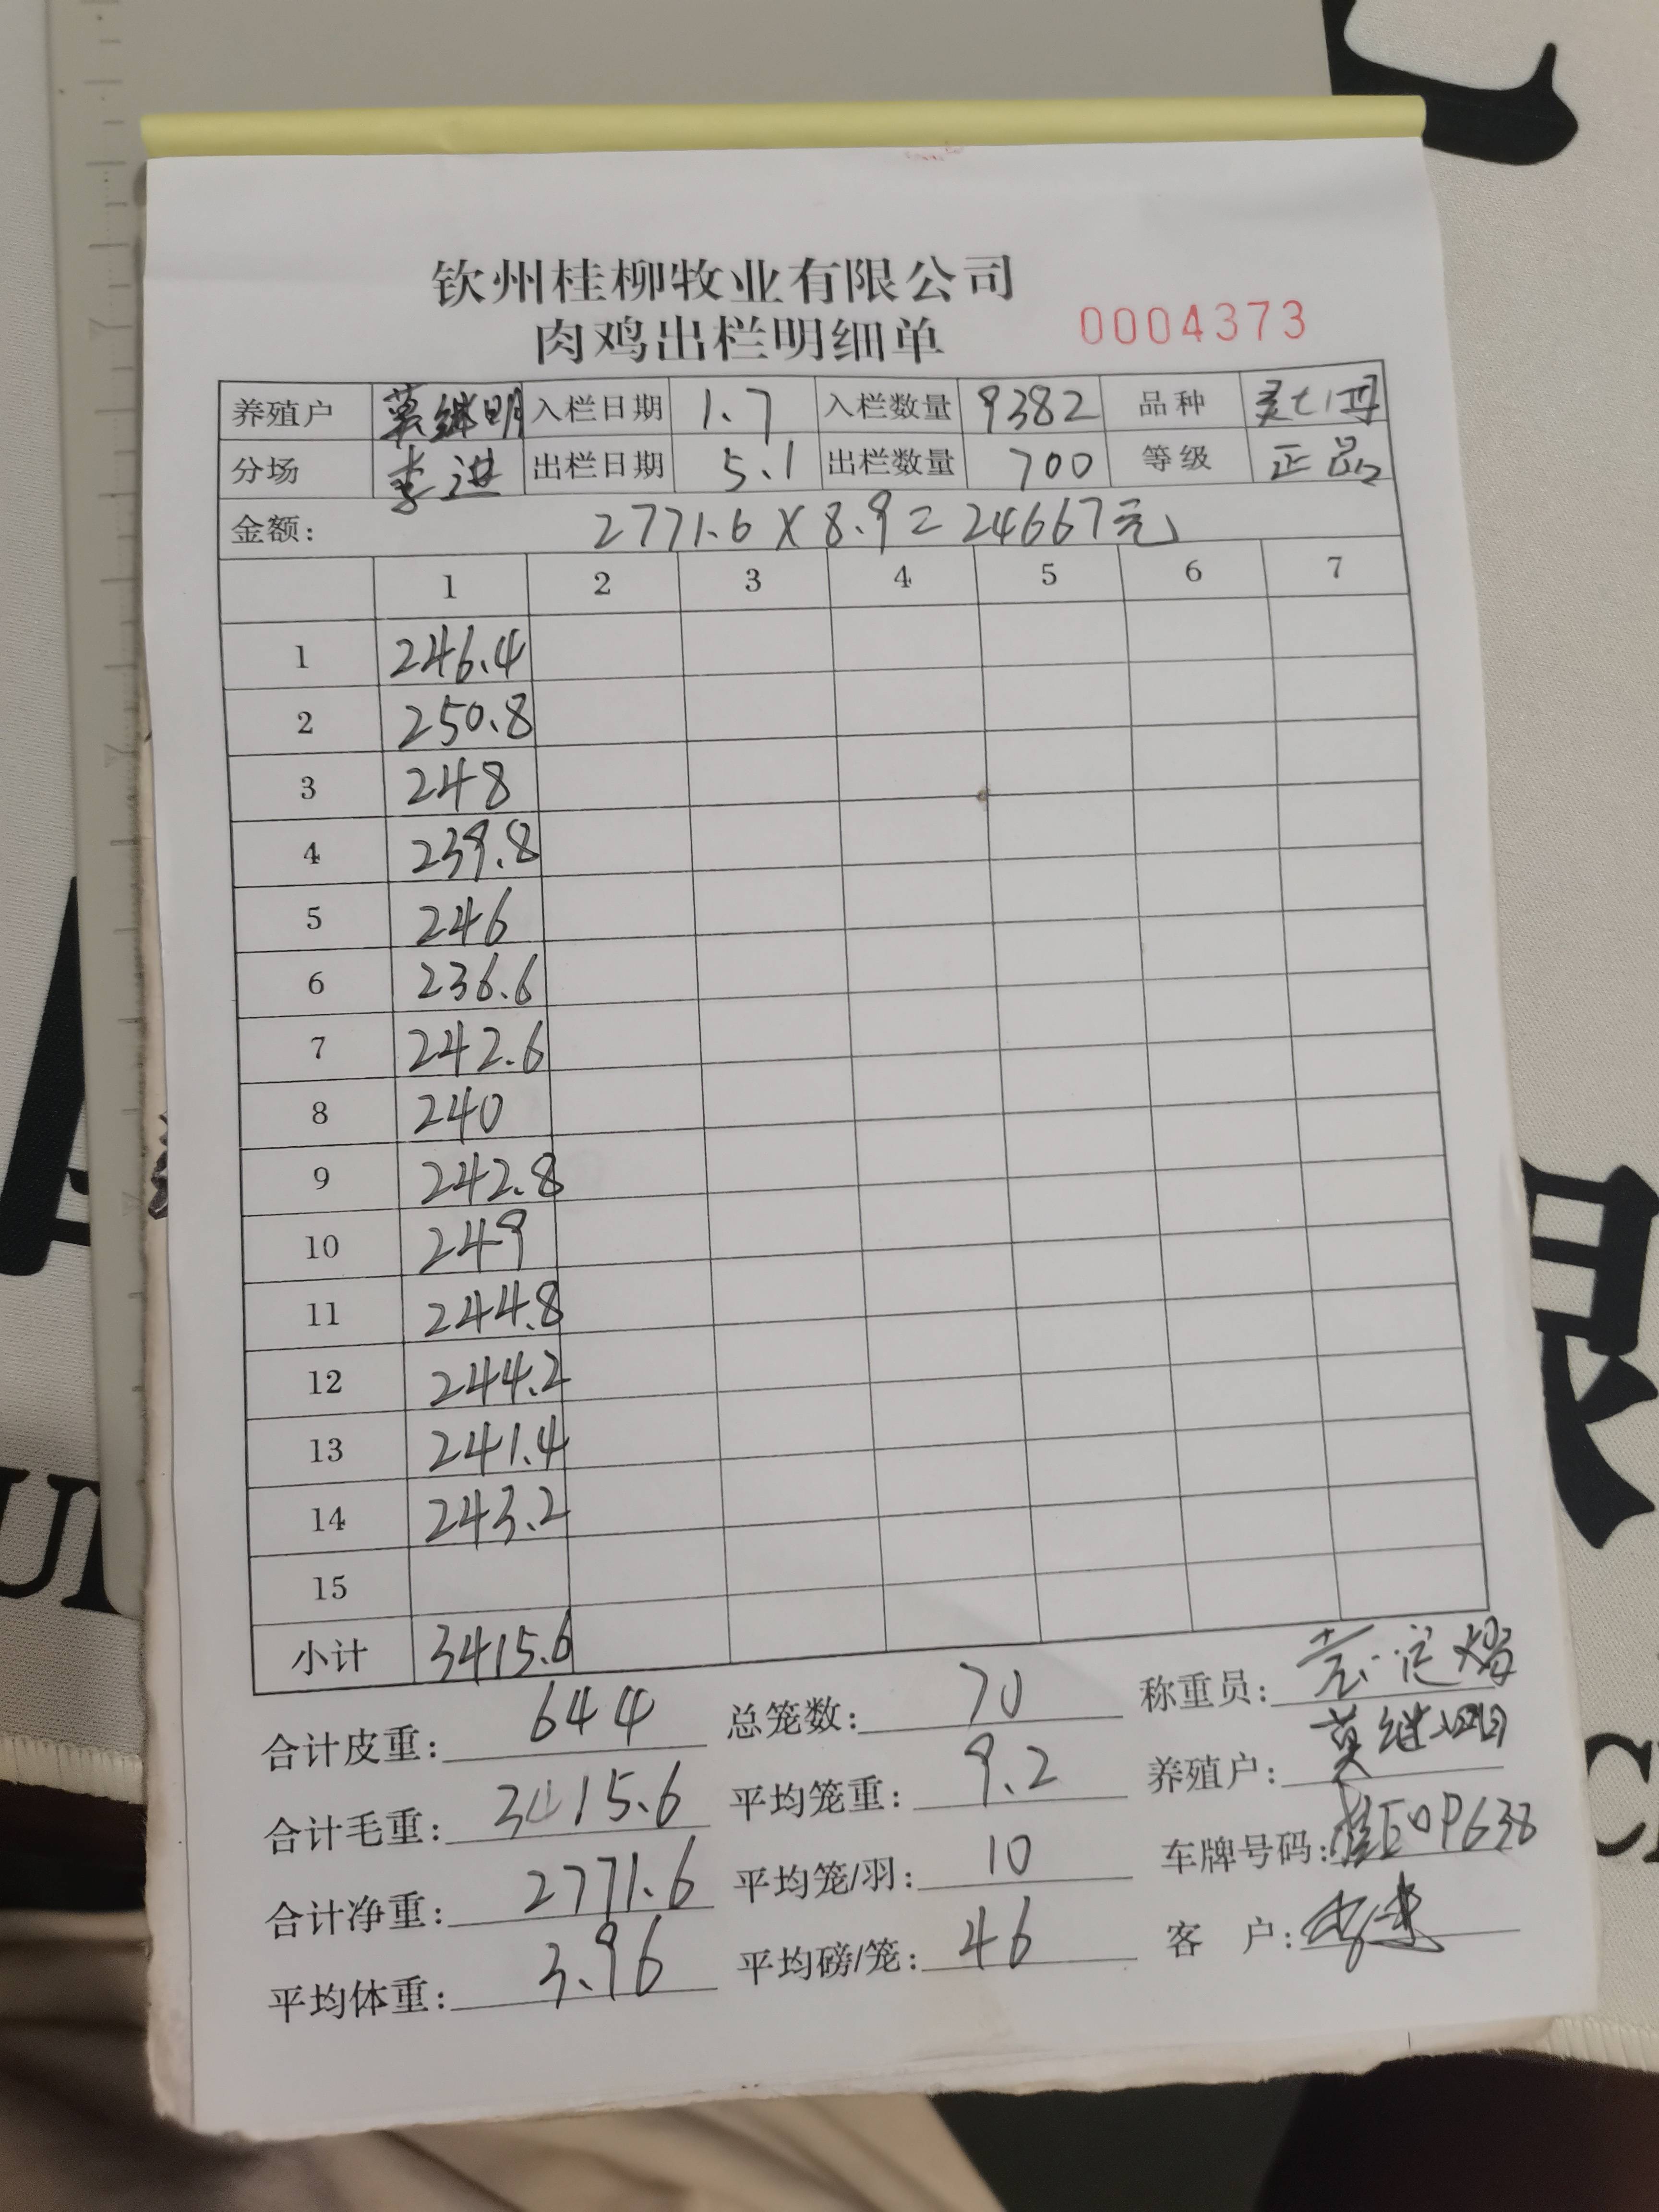 钦州桂柳牧业有限公司
肉鸡出栏明细单 0004373
养殖户 莫继明 入栏日期 1.7 入栏数量 9382 品种
分场 李进 出栏日期 5.1 出栏数量 700 等级 正品
金额: 2771.6 X 8.9 = 24667元
1 2 3 4 5 6 7
1 246.4
2 250.8
3 248
4 239.8
5 246
6 236.6
7 242.6
8 240
9 242.8
10 249
11 244.8
12 244.2
13 241.4
14 243.2
15
小计 3415.6
合计皮重: 644 总笼数: 70 称重员:
合计毛重: 3415.6 平均笼重: 9.2 养殖户: 莫继明
合计净重: 2771.6 平均笼/羽: 10 车牌号码: 桂E0P638
平均体重: 3.96 平均磅/笼: 46 客 户: